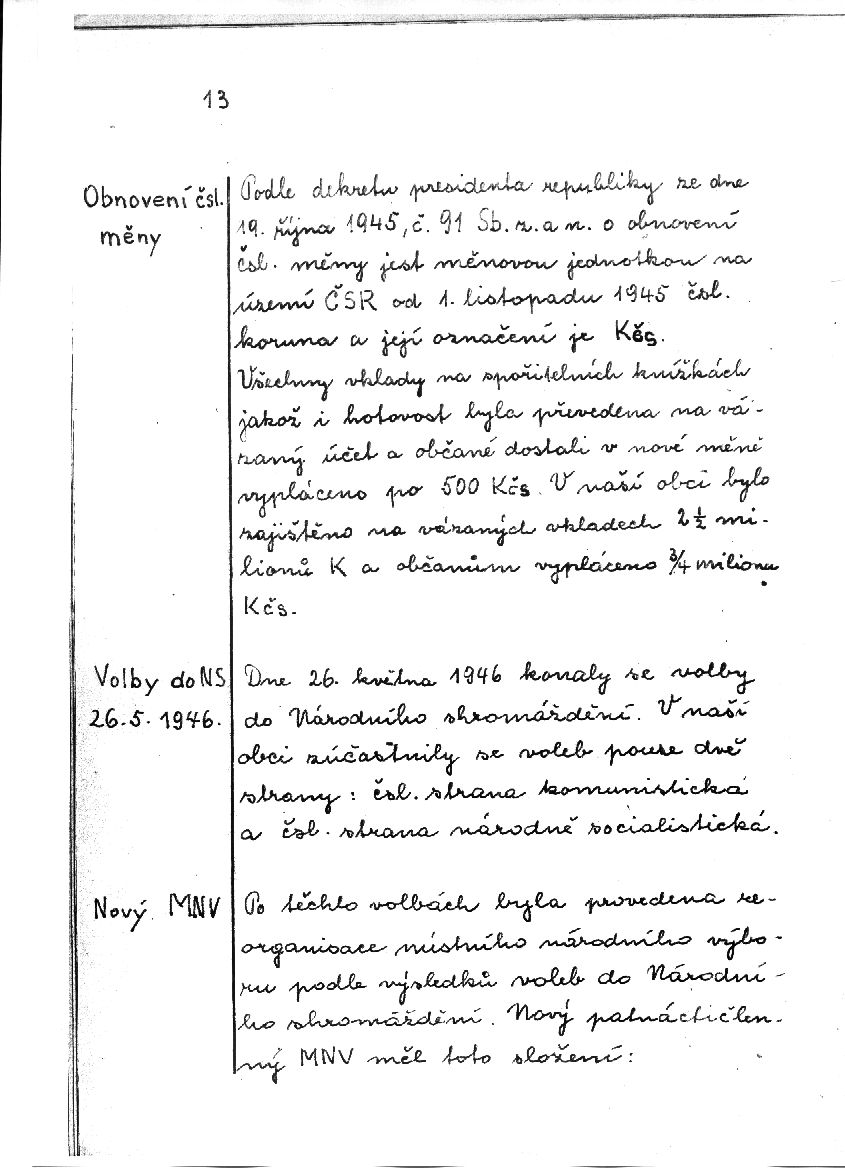 13
Obnovení čsl.
měny
Podle dekretu presidenta republiky ze dne
19. října 1945, č. 91 Sb. z. a n. o obnovení
čsl. měny jest měnovou jednotkou na
území ČSR od 1. listopadu 1945 čsl.
koruna a její označení je Kčs.
Všechny vklady na spořitelních knížkách
jakož i hotovost byla převedena na vá-
zaný účet a občané dostali v nové měně
vypláceno po 500 Kčs. V naší obci bylo
zajištěno na vázaných vkladech 2½ mi-
lionů K a občanům vypláceno ¾ milionu
Kčs.
Volby do NS
26.5. 1946.
Dne 26. května 1946 konaly se volby
do Národního shromáždění. V naší
obci zúčastnily se voleb pouze dvě
strany: čsl. strana komunistická
a čsl. strana národně socialistická.
Nový MNV
Po těchto volbách byla provedena re-
organisace místního národního výbo-
ru podle výsledků voleb do Národní-
ho shromáždění. Nový patnáctičlen-
ný MNV měl toto složení: